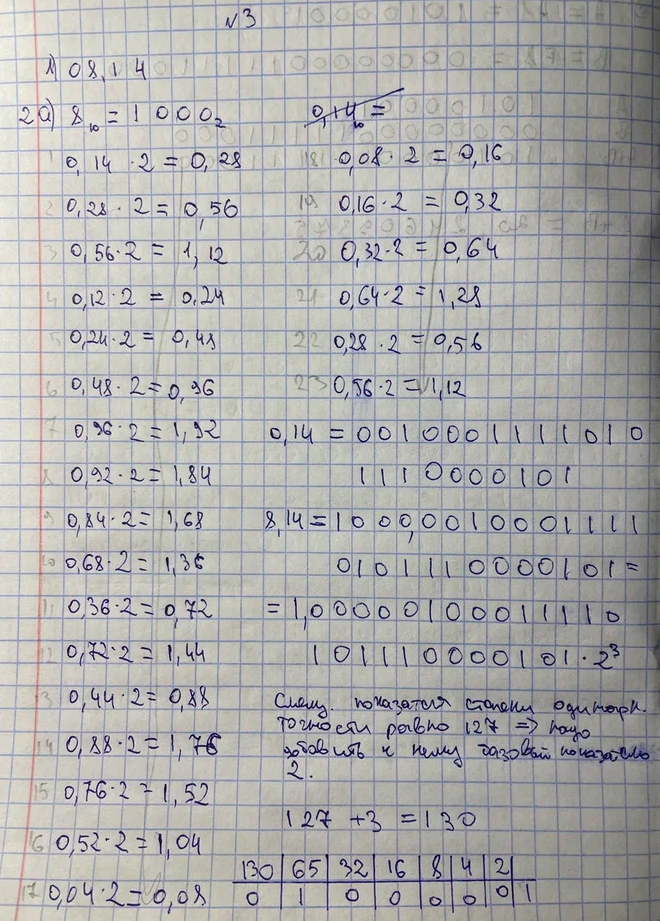 №3
1) 08,14
2a) 8₁₀ = 1 0 0 0₂
1 0,14 · 2 = 0,28
2 0,28 · 2 = 0,56
3 0,56 · 2 = 1,12
4 0,12 · 2 = 0,24
5 0,24 · 2 = 0,48
6 0,48 · 2 = 0,96
7 0,96 · 2 = 1,92
8 0,92 · 2 = 1,84
9 0,84 · 2 = 1,68
10 0,68 · 2 = 1,36
11 0,36 · 2 = 0,72
12 0,72 · 2 = 1,44
13 0,44 · 2 = 0,88
14 0,88 · 2 = 1,76
15 0,76 · 2 = 1,52
16 0,52 · 2 = 1,04
17 0,04 · 2 = 0,08
0,14₁₀ =
18 0,08 · 2 = 0,16
19 0,16 · 2 = 0,32
20 0,32 · 2 = 0,64
21 0,64 · 2 = 1,28
22 0,28 · 2 = 0,56
23 0,56 · 2 = 1,12
0,14 = 0 0 1 0 0 0 1 1 1 1 1 0 1 0
1 1 1 0 0 0 0 1 0 1
8,14 = 1 0 0 0, 0 0 1 0 0 0 1 1 1 1
0 1 0 1 1 1 0 0 0 0 1 0 1 =
= 1, 0 0 0 0 0 1 0 0 0 1 1 1 1 0
1 0 1 1 1 0 0 0 0 1 0 1 · 2³
точности равно 127 => надо
добавить к нему базовый
2.
127 + 3 = 130
130 65 32 16 8 4 2
0 1 0 0 0 0 0 1